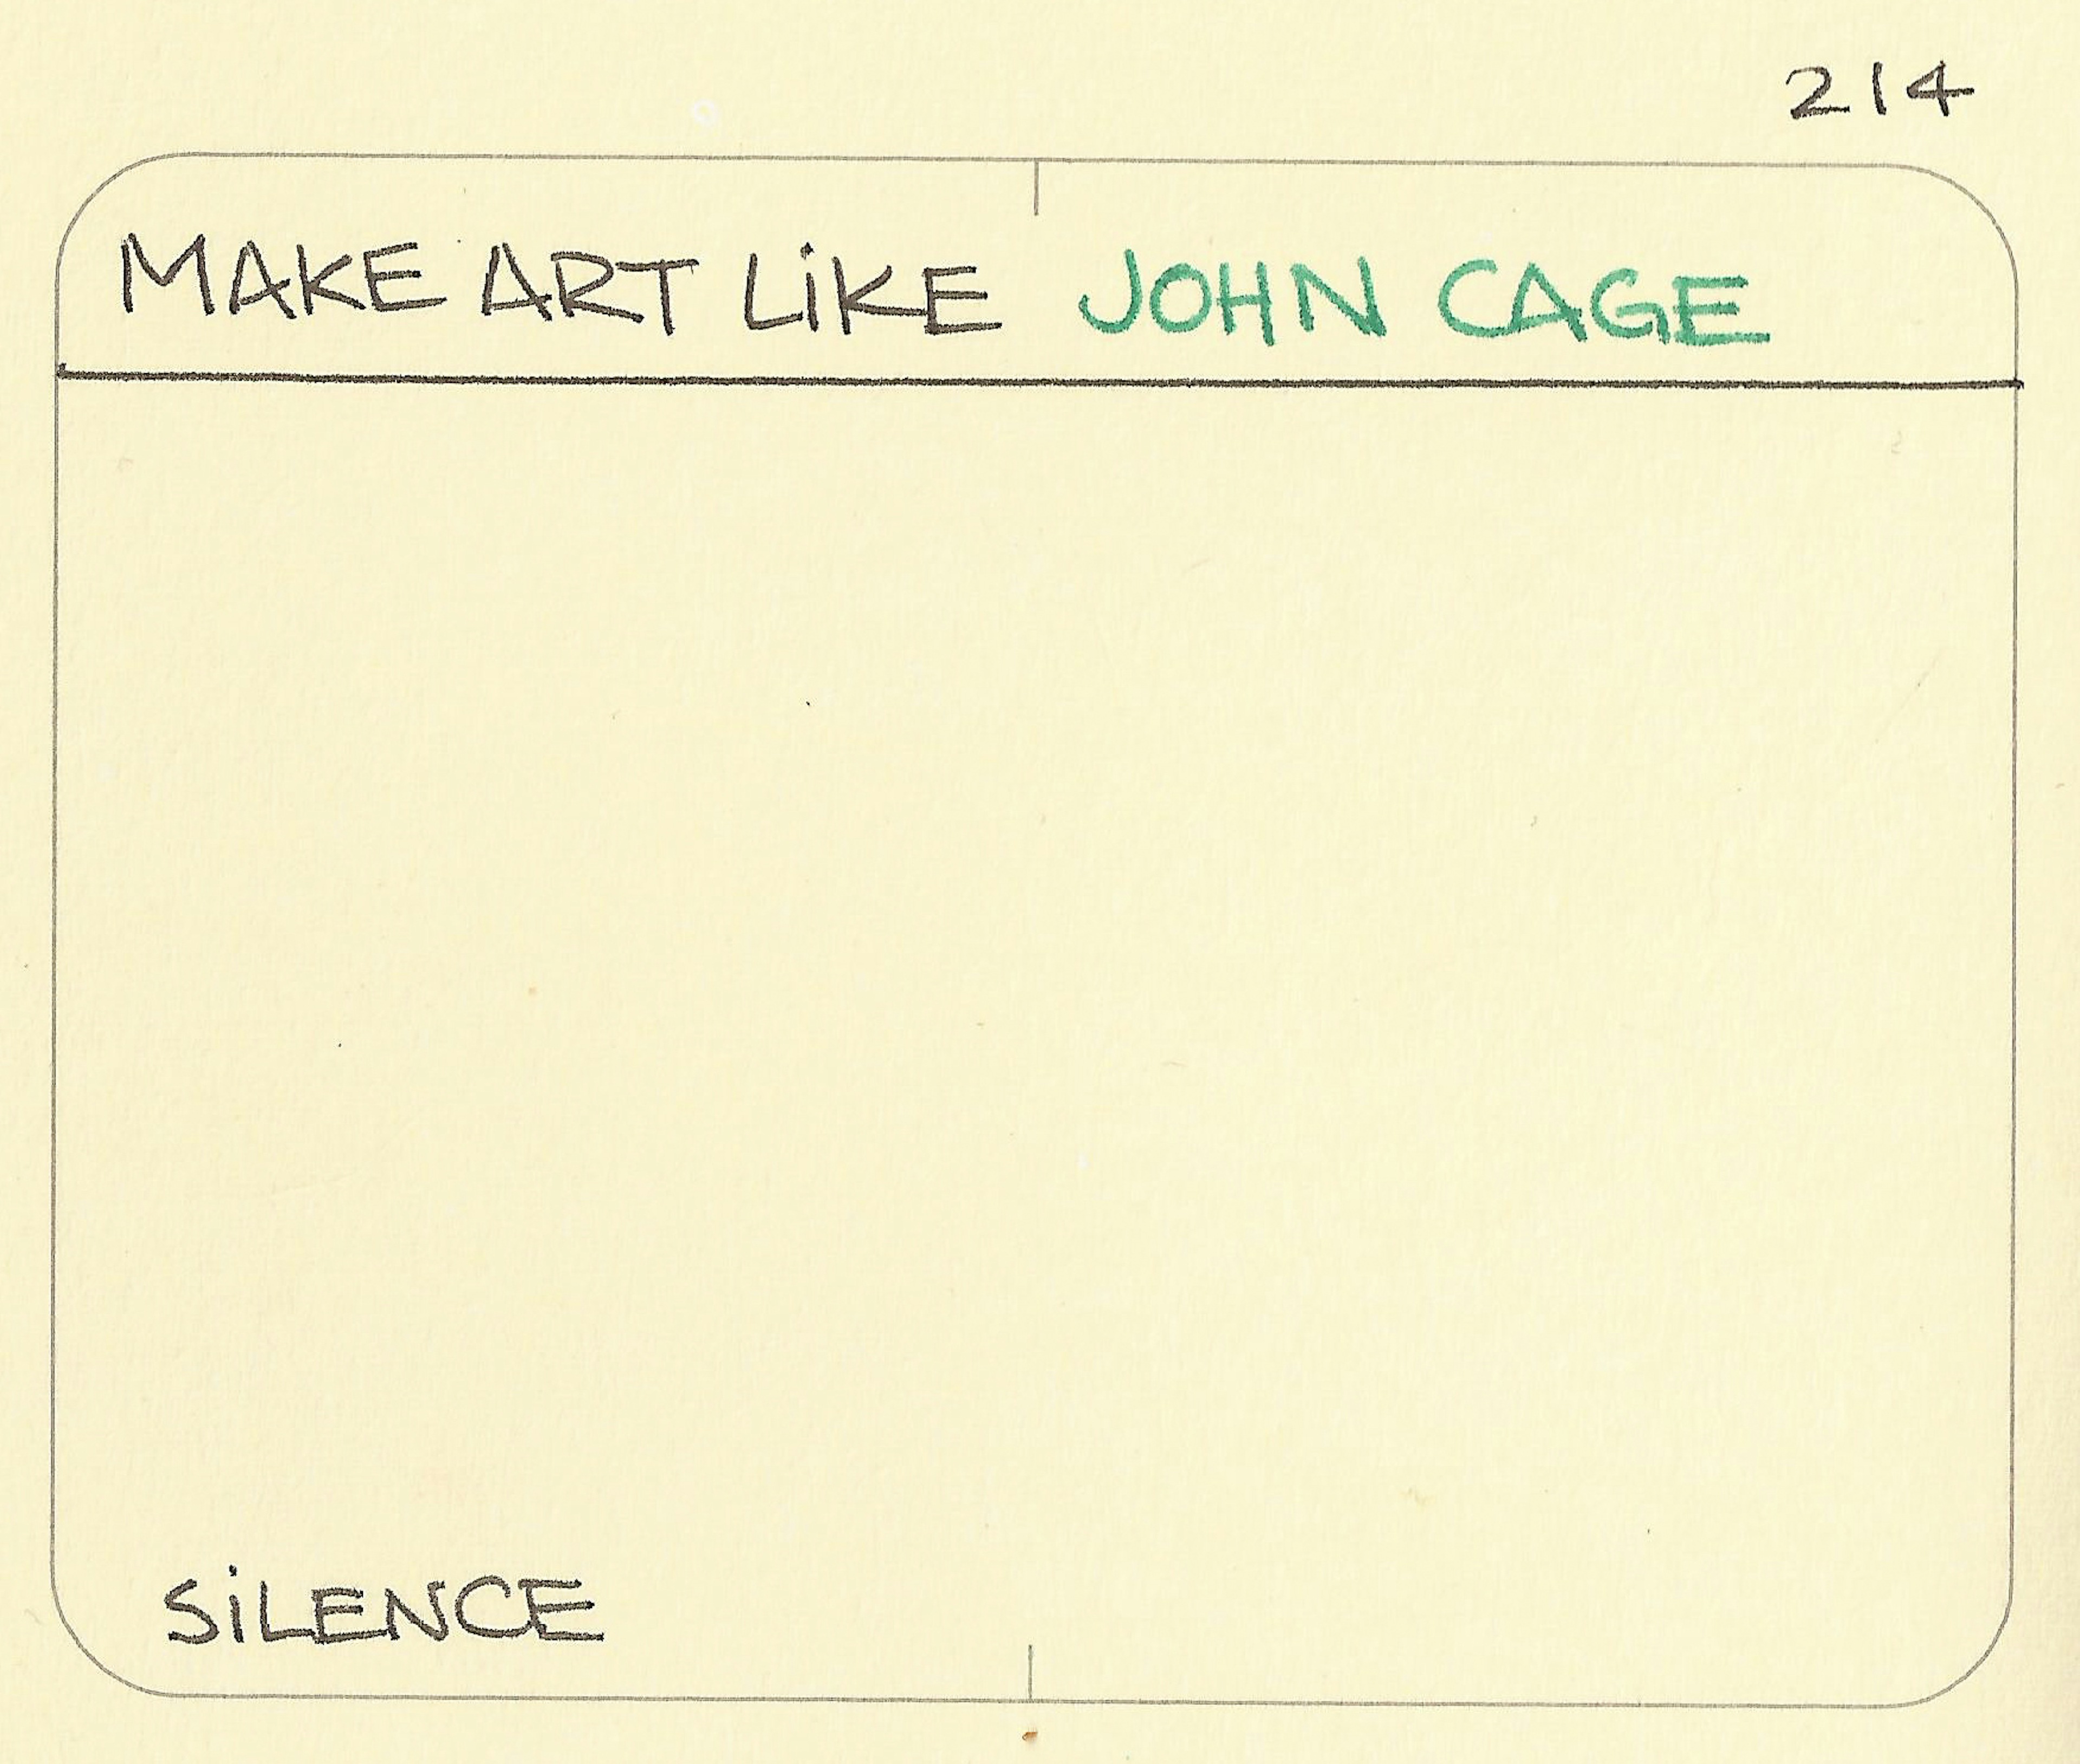 214
MAKE ART LiKE JOHN CAGE
SiLENCE